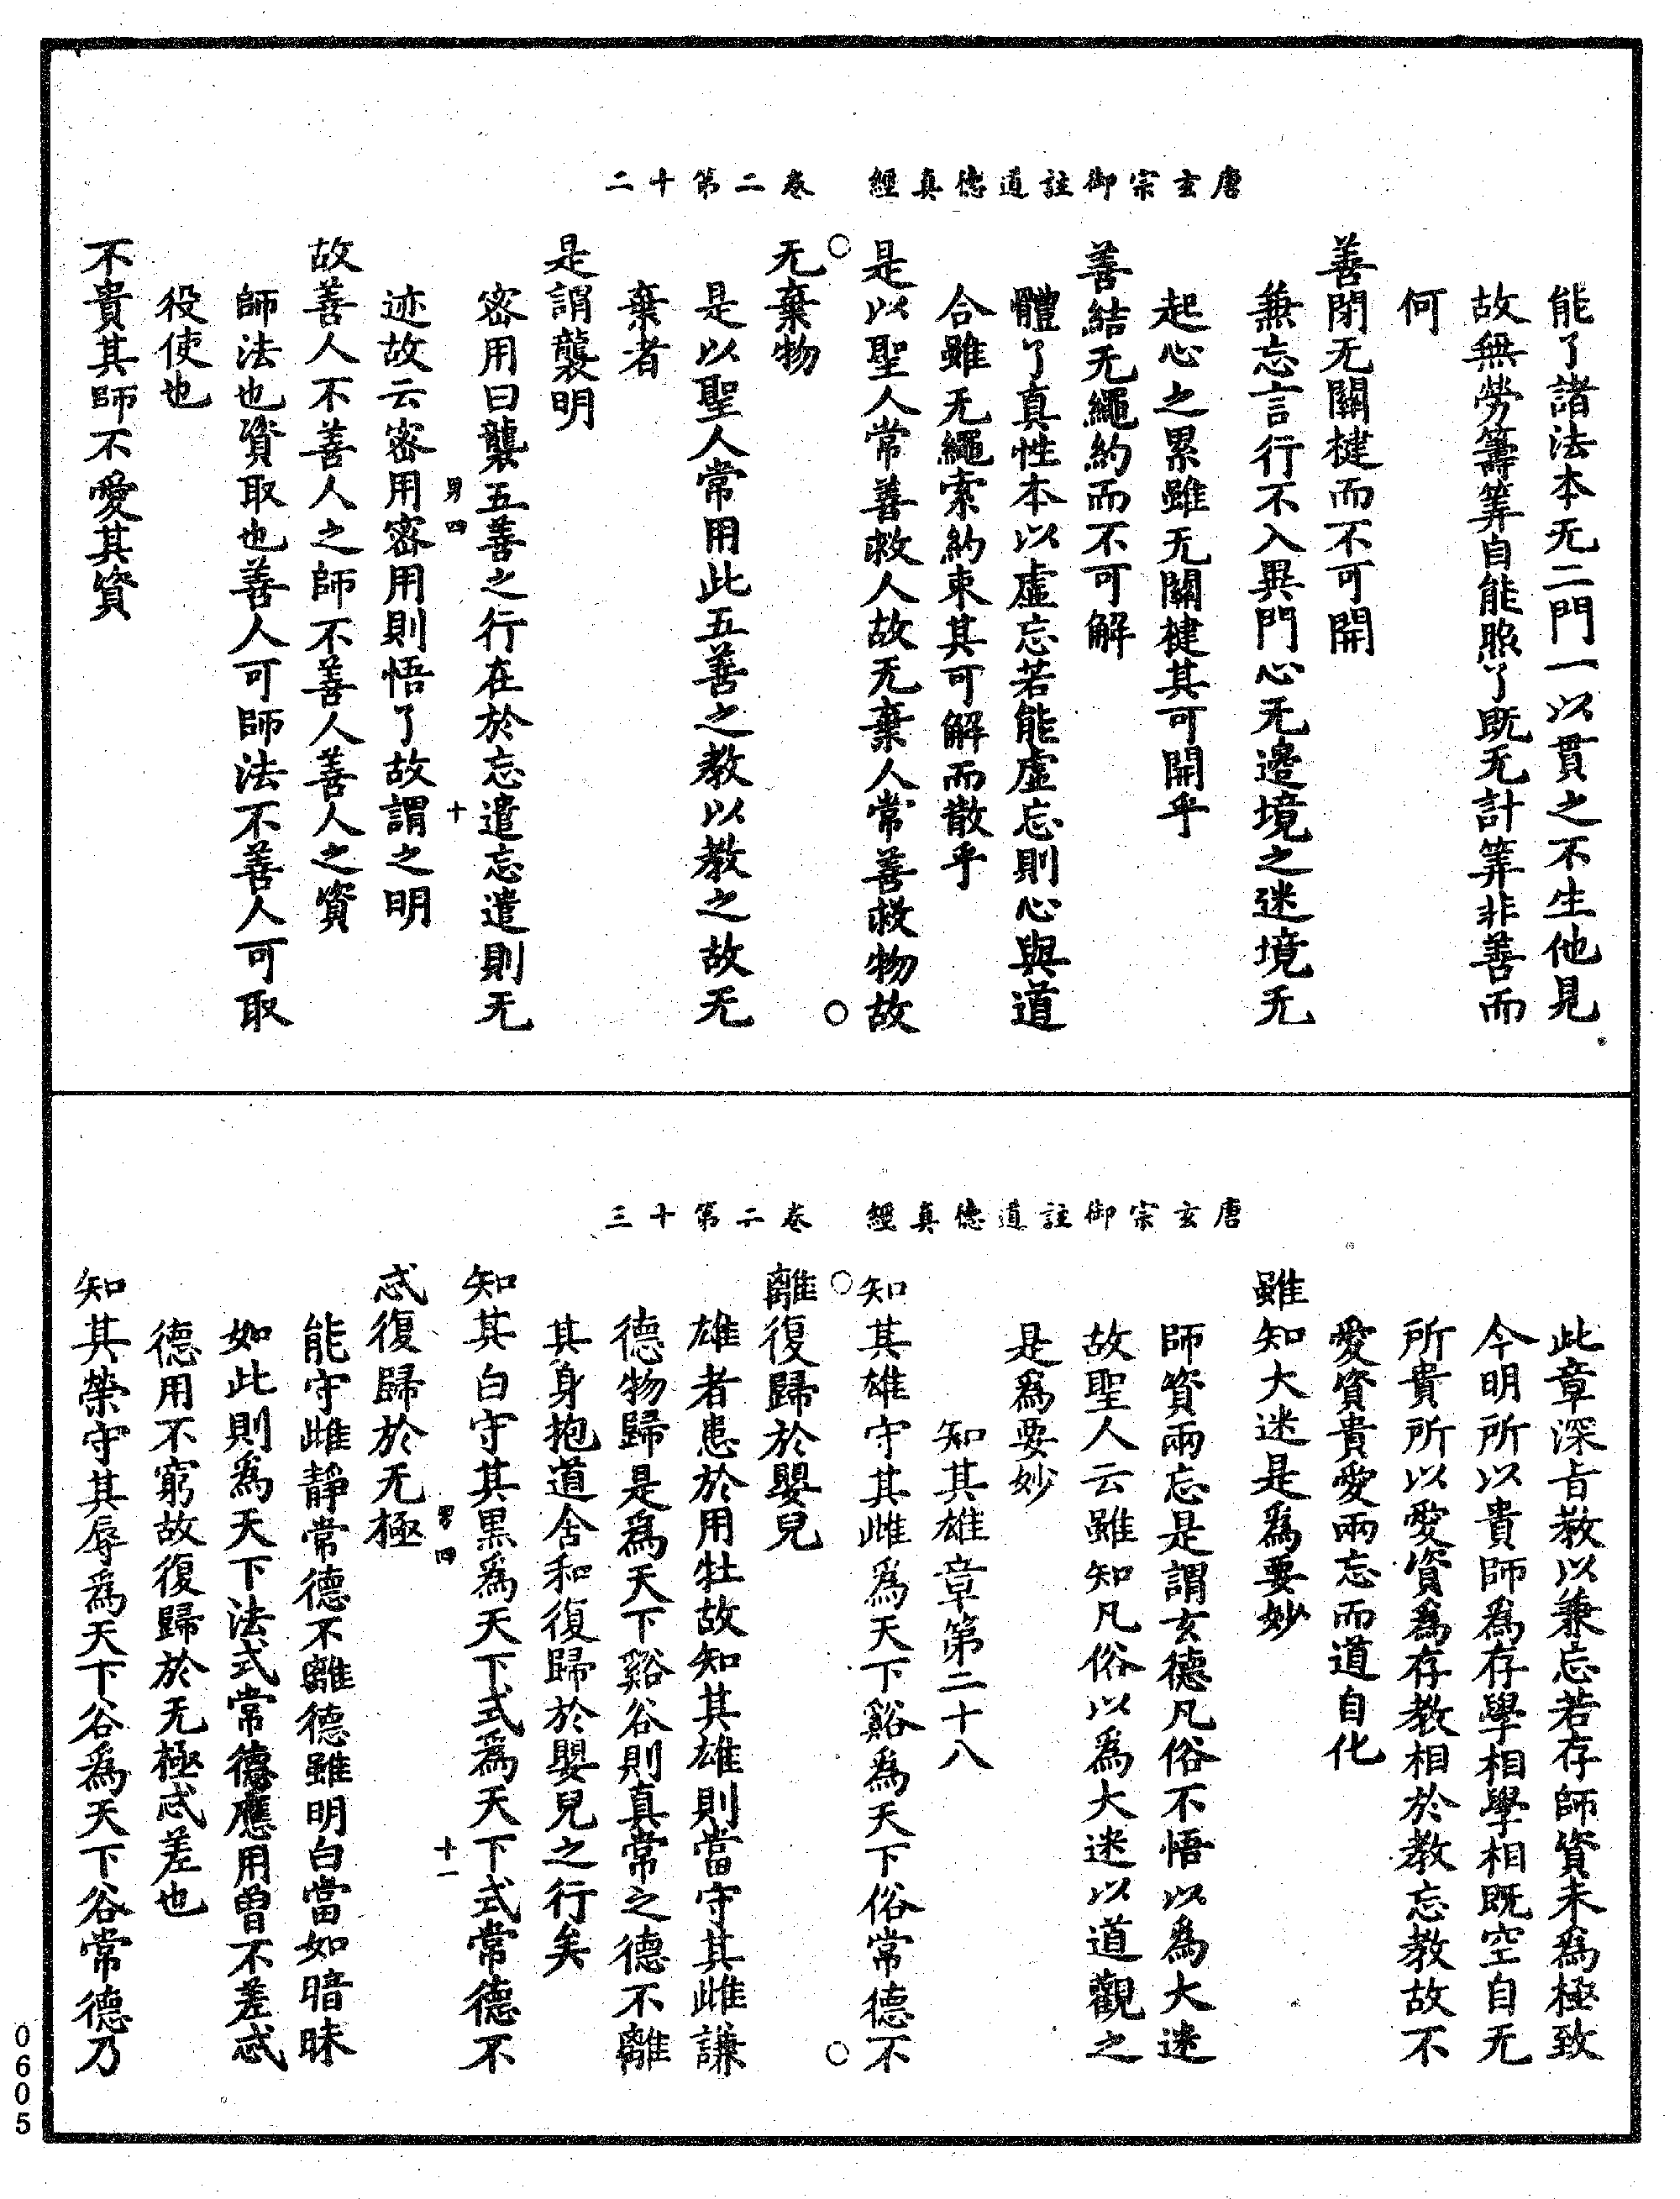 唐玄宗御註道德真經　卷二第十二
能了諸法本无二門一以貫之不生他見
故無勞籌筭自能照了既无計筭非善而
何
善閉无關楗而不可開
兼忘言行不入異門心无邊境之迷境无
起心之累雖无關楗其可開乎
善結无繩約而不可解
體了真性本以虛忘若能虛忘則心與道
合雖无繩索約束其可解而散乎
是以聖人常善救人故无棄人常善救物故
无棄物
是以聖人常用此五善之教以教之故无
棄者
是謂襲明
密用曰襲五善之行在於忘遣忘遣則无
男四　十
迹故云密用密用則悟了故謂之明
故善人不善人之師不善人善人之資
師法也資取也善人可師法不善人可取
役使也
不貴其師不愛其資
唐玄宗御註道德真經　卷二第十三
此章深旨教以兼忘若存師資未為極致
今明所以貴師為存學相學相既空自无
所貴所以愛資為存教相於教忘教故不
愛資貴愛兩忘而道自化
雖知大迷是為要妙
師資兩忘是謂玄德凡俗不悟以為大迷
故聖人云雖知凡俗以為大迷以道觀之
是為要妙
知其雄章第二十八
知其雄守其雌為天下谿為天下俗常德不
離復歸於嬰兒
雄者患於用牡故知其雄則當守其雌謙
德物歸是為天下谿谷則真常之德不離
其身抱道含和復歸於嬰兒之行矣
知其白守其黑為天下式為天下式常德不
男四　十一
忒復歸於无極
能守雌靜常德不離德雖明白當如暗昧
如此則為天下法式常德應用曾不差忒
德用不窮故復歸於无極忒差也
知其榮守其辱為天下谷為天下谷常德乃
0605